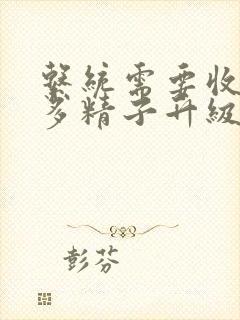 繫統需要收
多精子升級
彭芬